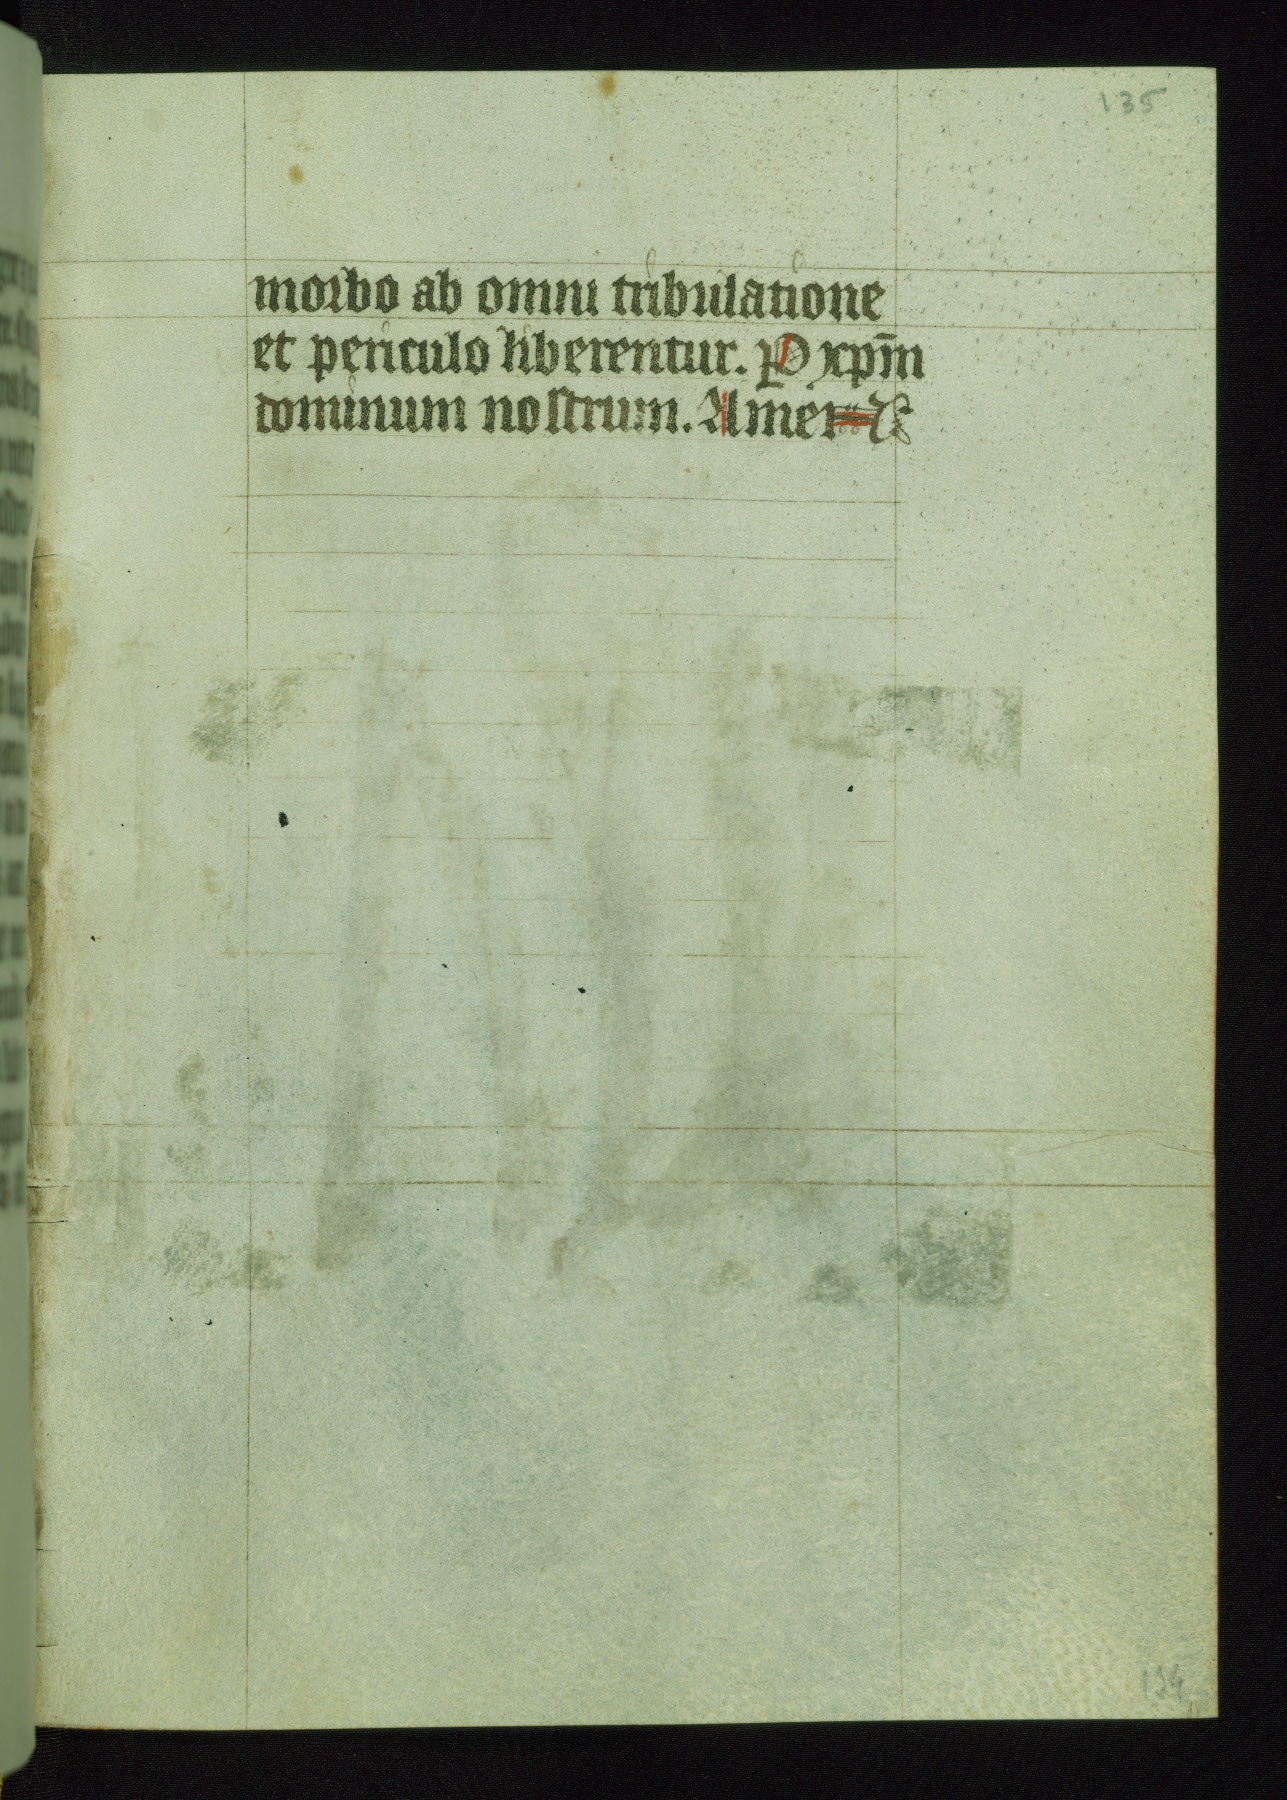 135
morbo ab omni tribulatione
et periculo liberentur. P xp̄m
dominum nostrum. Amen
134